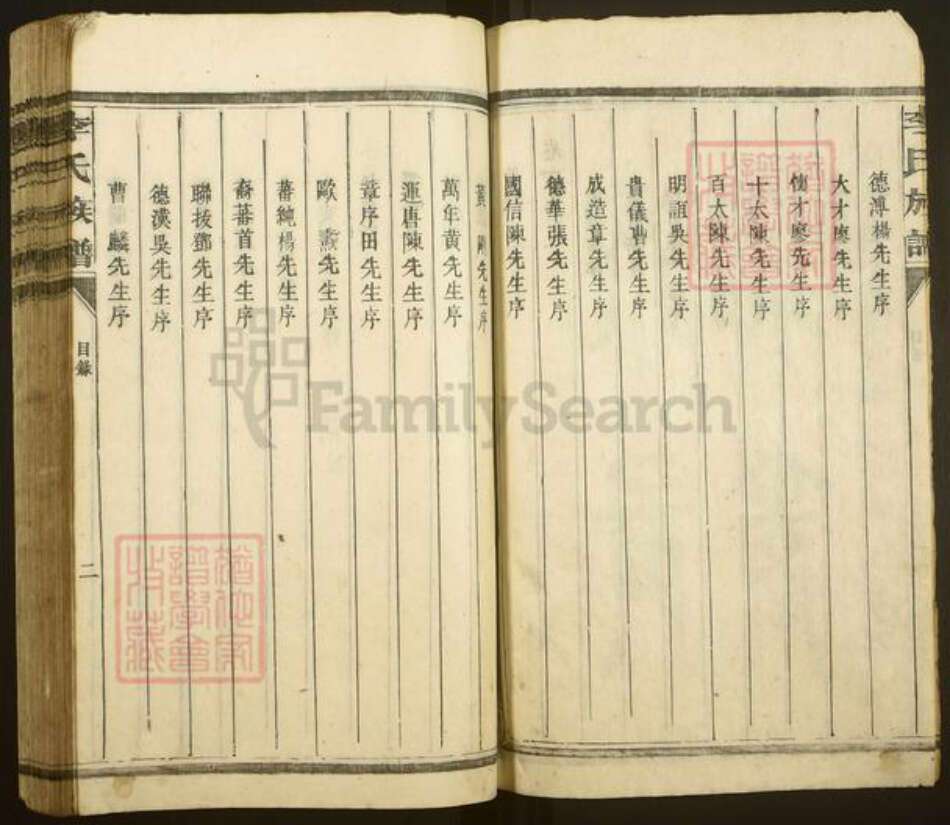 李氏族譜
德溥楊先生序
大才廖先生序
才廖先生序
十太陳先生序
百太陳先生序
明誼吳先生序
貴儀曹先生序
成造章先生序
德華張先生序
國信陳先生序
先生序
萬年黄先生序
運唐陳先生序
章序田先生序
歐 先生序
蕃純楊先生序
裔蕃首先生序
聯拔鄧先生序
德漢吳先生序
曹 麟先生序
李氏族譜
目錄
二
譜學會
FamilySearch